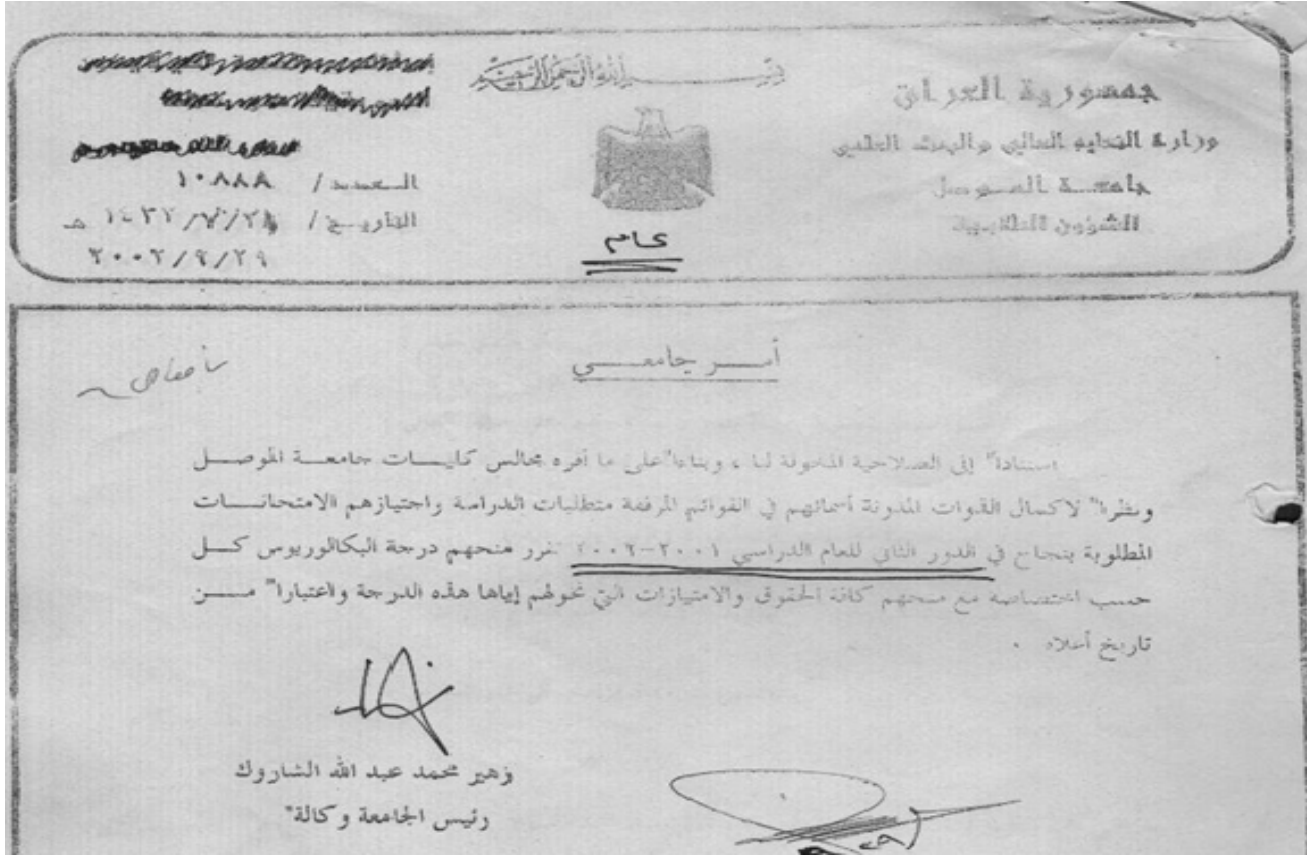 بسم الله الرحمن الرحيم
جمهورية العراق
وزارة التعليم العالي والبحث العلمي
جامعة الموصل
الشؤون الطلابية
العدد / ١٠٨٨٨
التاريخ / هـ
٢٠٠٢/٩/٢٩
عام
أمر جامعي
استنادا" إلى الصلاحية المخولة لنا ، وبناءا" على ما أقره مجالس كليات جامعة الموصل
ونظرا" لاكمال الذوات المدونة أسمائهم في القوائم المرفقة متطلبات الدراسة واجتيازهم الامتحانات
المطلوبة بنجاح في الدور الثاني للعام الدراسي ٢٠٠١-٢٠٠٢ تقرر منحهم درجة البكالوريوس كل
حسب اختصاصه مع منحهم كافة الحقوق والامتيازات التي تخولهم إياها هذه الدرجة واعتبارا" من
تاريخ أعلاه .
زهير محمد عبد الله الشاروك
رئيس الجامعة وكالة"